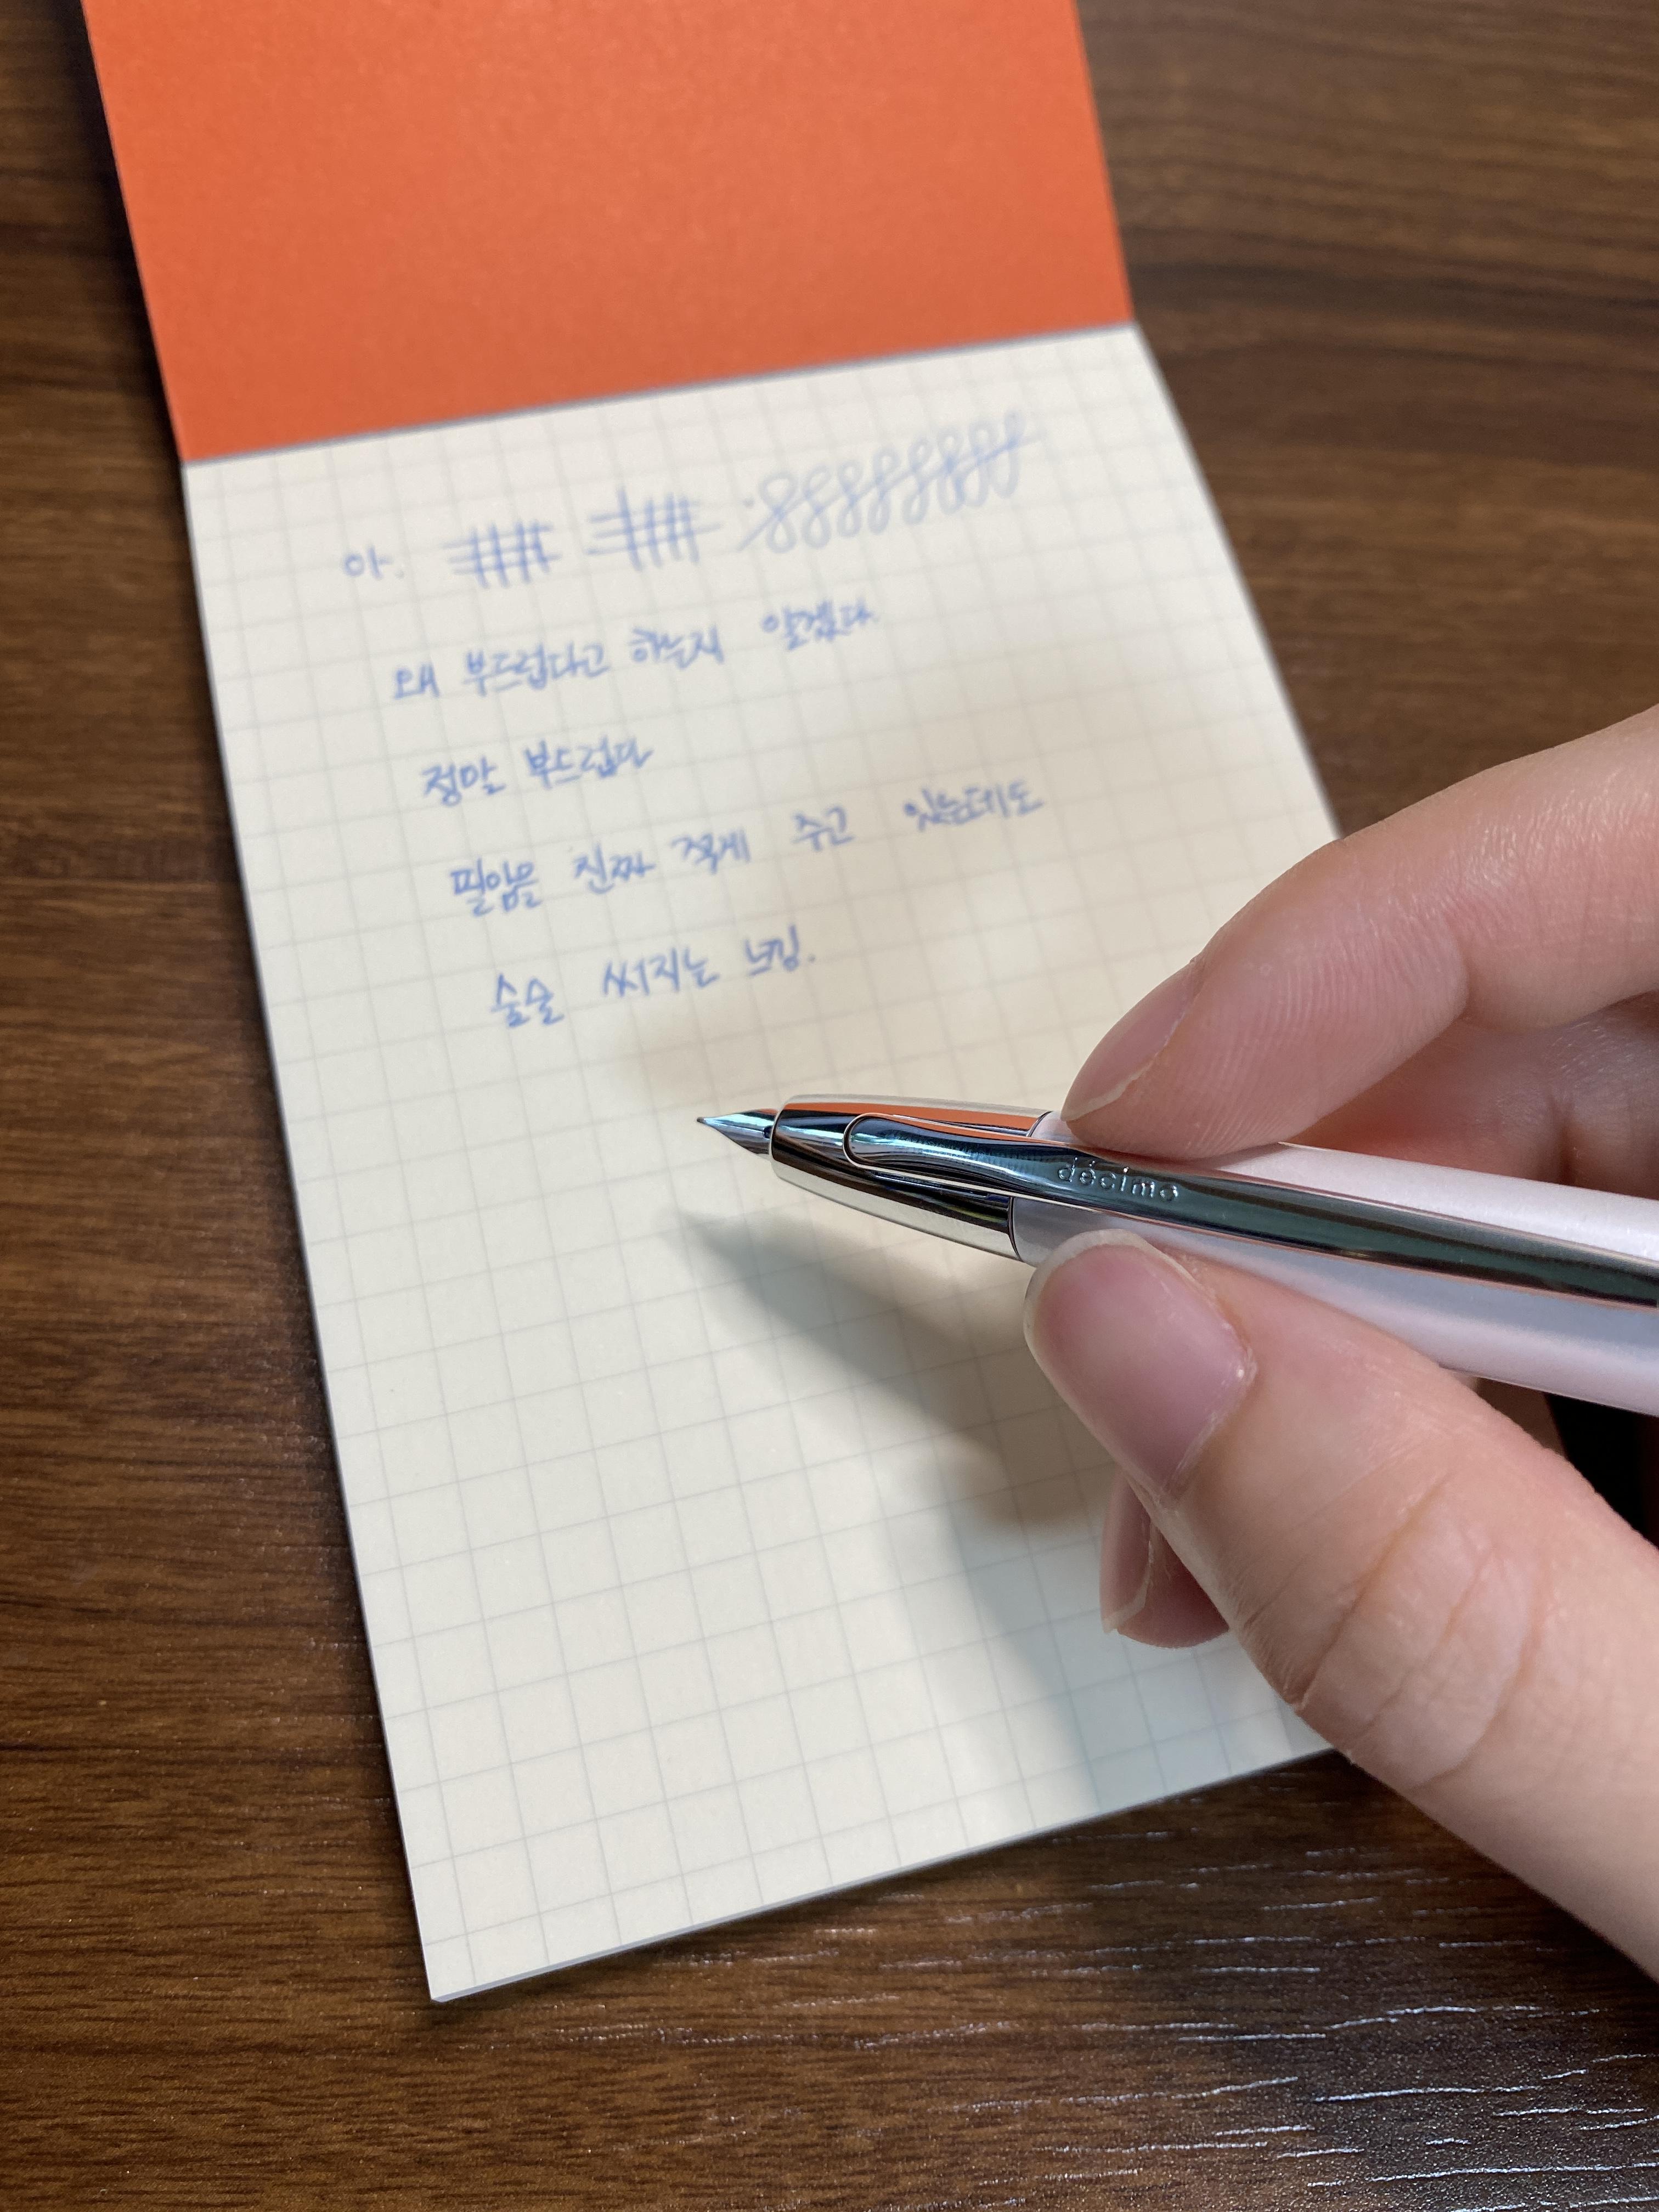 아.
왜 부드럽다고 하는지 알겠다
정말 부드럽다
필압을 진짜 적게 주고 있는데도
술술 써지는 느낌.
décimo